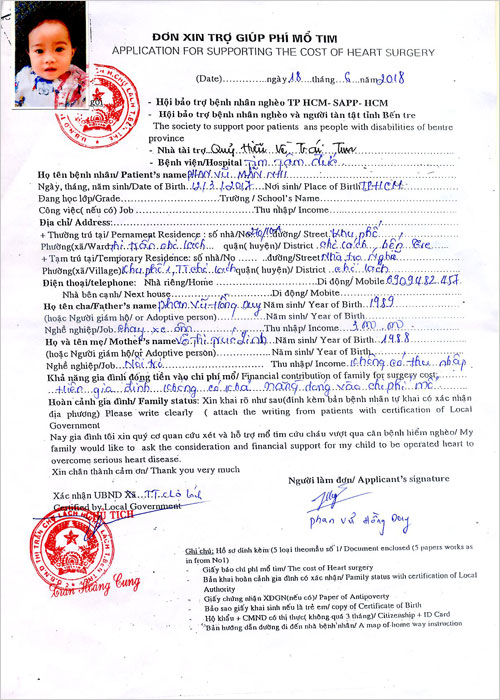 ĐƠN XIN TRỢ GIÚP PHÍ MỔ TIM
APPLICATION FOR SUPPORTING THE COST OF HEART SURGERY
(Date)..............ngày 18 ....tháng..6....năm 2018
gửi
- Hội bảo trợ bệnh nhân nghèo TP HCM- SAPP- HCM
- Hội bảo trợ bệnh nhân nghèo và người tàn tật tỉnh Bến tre
The society to support poor patients ans people with disabilities of bentre
province
- Nhà tài trợ Quỹ Thiều Về Trái Tim
- Bệnh viện/Hospital Tim Tâm Đức
Họ tên bệnh nhân/ Patient's name PHAN VŨ MẪN NHI
Ngày, tháng, năm sinh/Date of Birth..12/3./.2017..Nơi sinh/ Place of Birth TPHCM
Đang học lớp/Grade.....................Trường / School's Name
Công việc( nếu có) Job ..................Thu nhập/ Income
Địa chỉ/ Address:
+ Thường trú tại/ Permament Residence : số nhà/No đường/ Street khu phố
Phường(xã/Ward) thị trấn chợ lách quận( huyện)/ District chợ lách, bến tre
+ Tạm trú tại/Temporary Residence: số nhà/No .........đường/Street
Phường(xã/Village) khu phố 1, TT. chợ lách quận( huyện)/ District chợ lách
Điện thoại/telephone: Nhà riêng/Home.................Di động/ Mobile 0909482457
Nhà bên cạnh/ Next house.................Di động/ Mobile
Họ tên cha/Father's name phan Vũ Hồng Duy Năm sinh/ Year of Birth 1989
(hoặc Người giám hộ/ or Adoptive person).................Năm sinh/ Year of Birth
Nghề nghiệp/Job chạy xe ôm Thu nhập/ Income 3.000.000
Họ và tên mẹ/ Mother's name Võ Thị Trúc Linh Năm sinh/ Year of Birth 1988
(Hoặc Người giám hộ/or Adoptive person)..............Năm sinh/ Year of Birth
Nghề nghiệp/Job Nội trợ Thu nhập/ Income không có thu nhập
Khả năng gia đình đóng tiền vào chi phí mổ/ Financial contribution of family for surgery cost:
tiền gia đình không có khả năng đóng vào chi phí mổ
Hoàn cảnh gia đình/ Family status: Xin khai rõ như sau(đính kèm bản bệnh nhân tự khai có xác nhận
địa phương) Please write clearly ( attach the writing from patients with certification of Local
Government
Nay gia đình tôi xin quý cơ quan cứu xét và hỗ trợ mổ tim cứu cháu vượt qua căn bệnh hiểm nghèo/ My
family would like to ask the consideration and financial support for my child to be operated heart to
overcome serious heart disease.
Xin chân thành cảm ơn/ Thank you very much
Người làm đơn/ Applicant's signature
Xác nhận UBND Xã...TT.chợ lách
Certified by Local Government
CHỦ TỊCH
phan vũ Hồng Duy
Trần Hoàng Cung
Ghi chú: Hồ sơ đính kèm(5 loại theomẫu số 1/ Document enclosed (5 papers works as
in from No1)
- Giấy báo chi phí mổ tim/ The cost of Heart surgery
- Bản khai hoàn cảnh gia đình có xác nhận/ Family status with certification of Local
Authority
- Giấy chứng nhận XĐGN(nếu có)/ Paper of Antipoverty
- Bảo sao giấy khai sinh nếu là trẻ em/ copy of Certificate of Birth
- Hộ khẩu + CMND có thị thực( không quá 3 tháng)/ Citizenship + ID Card
- "Bản hướng dẫn đường đi đến nhà bệnh nhân/ A map of home way instruction